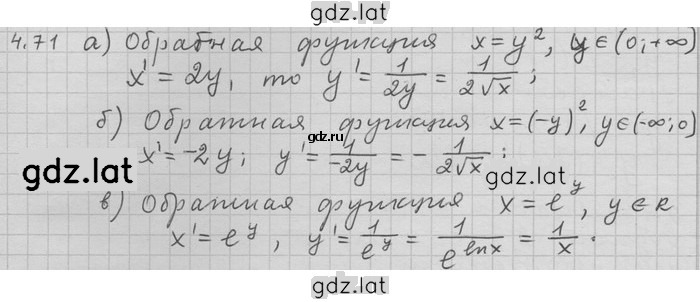 gdz.lat
4.71 а) Обратная функция x = y², y ∈ (0; +∞)
x' = 2y, то y' = 1/2y = 1/2√x ;
б) Обратная функция x = (-y)², y ∈ (-∞; 0)
gdz.ru
x' = -2y; y' = 1/-2y = - 1/2√x ;
gdz.lat
gdz.lat
в) Обратная функция x = e^y, y ∈ R
x' = e^y, y' = 1/e^y = 1/e^lnx = 1/x .
gdz.lat